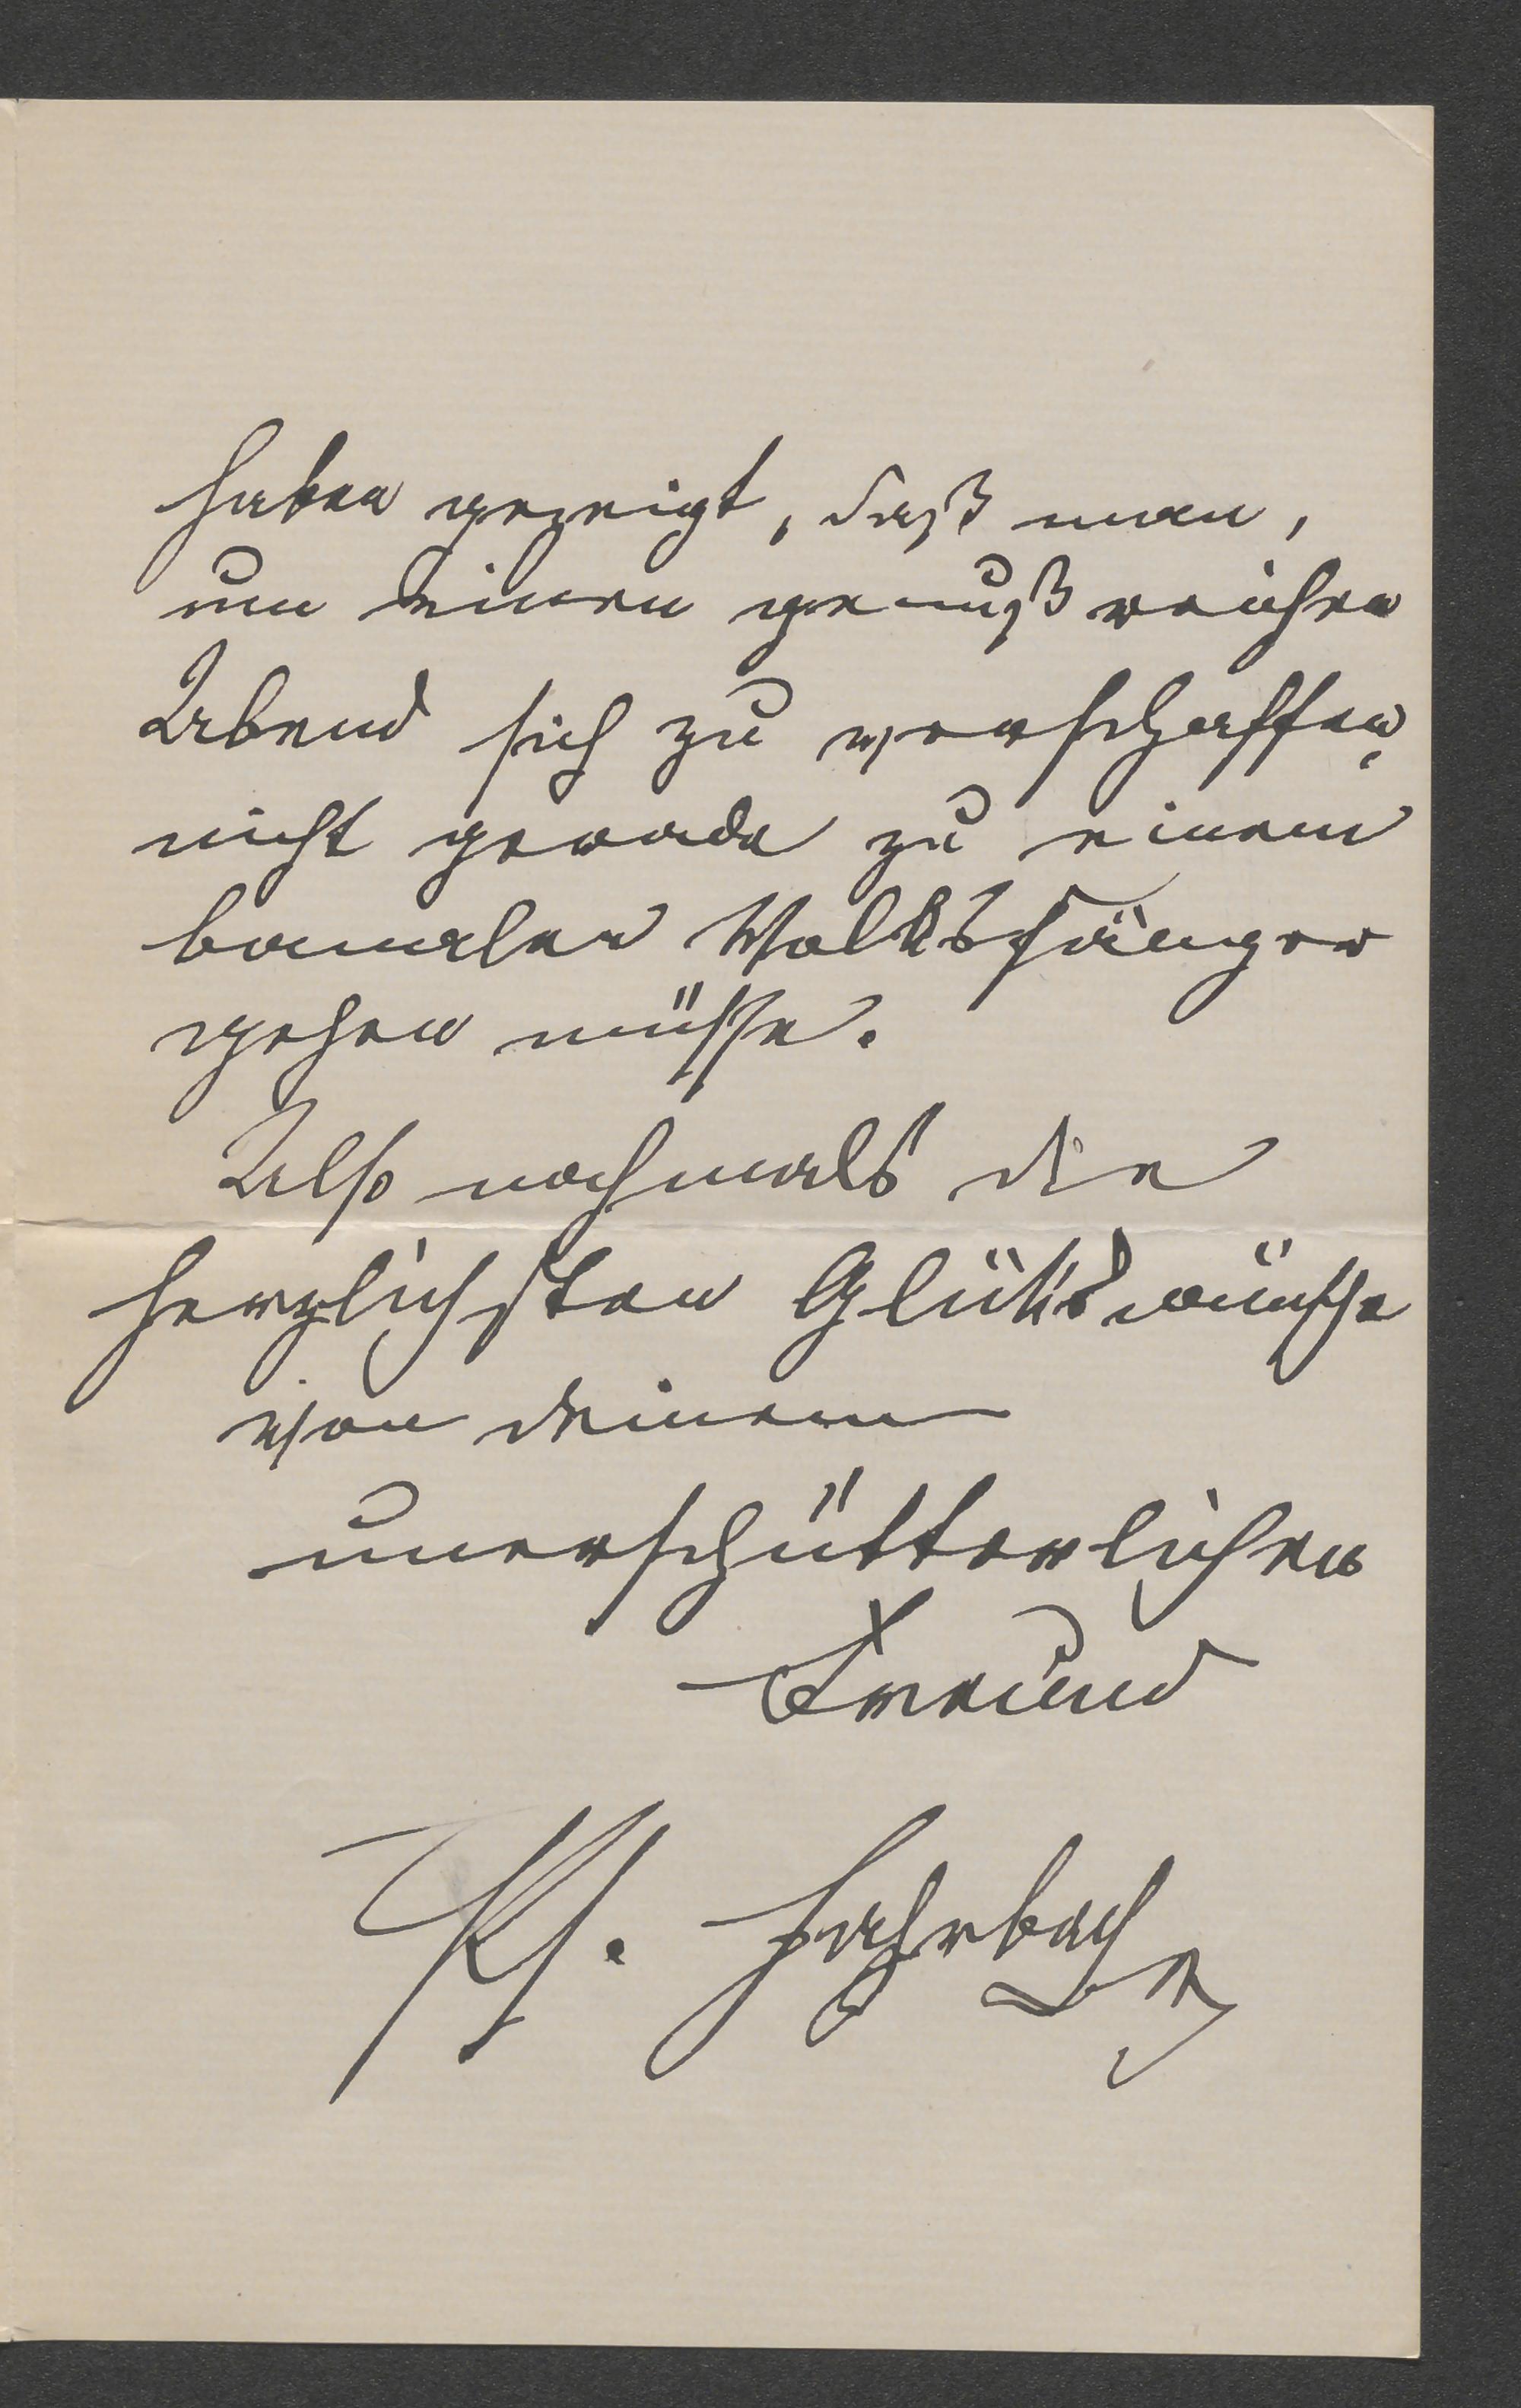 haben gezeigt, daß man,
um einen genußreichen
Abend sich zu verschaffen,
nicht gerade zu einem
banalen Volkssänger
gehen müsse.
Also nochmals die
herzlichsten Glückswünsche
von deinem
unerschütterlichen
Freund
Ph. Fahrbach